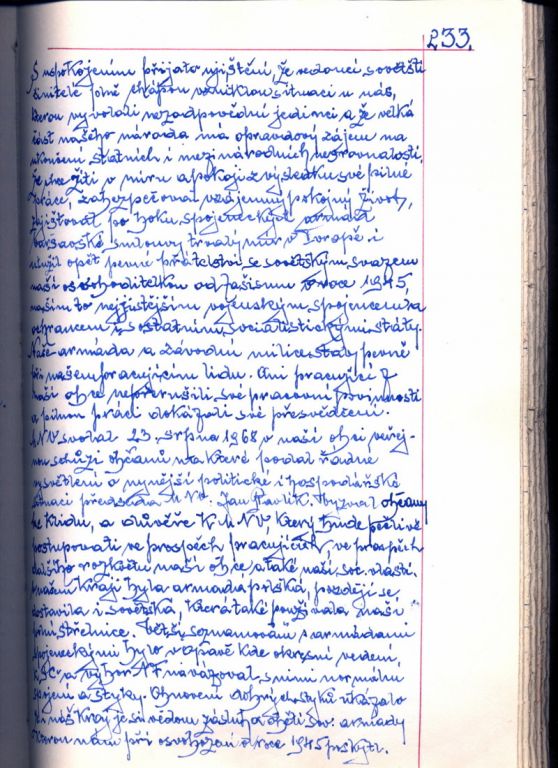 233.
S uspokojením přijato ujištění, že vedoucí sovětští
činitelé plně chápou vzniklou situaci u nás,
kterou vyvolali nezodpovědní jedinci a že velká
část našeho národa má opravdový zájem na
ukončení státních i mezinárodních nesrovnalostí,
že chce žíti v míru a pokoji z výsledku své pilné
práce, zabezpečovat vzájemný pokojný život,
zajišťovat po boku spojeneckých armád
Varšavské smlouvy trvalý mír v Evropě i
utužit opět pevné přátelství se sovětským svazem
naší osvoboditelkou od fašismu v roce 1945,
naším to nejjistějším vojenským spojencem a
ochráncem i s ostatními socialistickými státy.
Naše armáda a závodní milice stály pevně
při našem pracujícím lidu. Ani pracující z
naší obce nepřerušili své pracovní povinnosti
a pilnou prací dokázali své přesvědčení.
MNV svolal 23. srpna 1968 v naší obci veřej-
nou schůzi občanů na které podal řádné
vysvětlení o nynější politické i hospodářské
situaci předseda MNV. Jan Pavlík. Vyzval občany
ke klidu, a důvěře K MNV, který bude pečlivě
postupovati ve prospěch pracujících, ve prospěch
dalšího rozkvětu naší obce a také naší soc. vlasti.
V našem kraji byla armáda polská, později se
dostavila i sovětská, která také používala naší
střelnice. Větší seznamování s armádami
spojeneckými bylo v Opavě kde okresní vedení,
KSČ a výbor NF navázoval s nimi normální
spojení a styky. Obnovení dobrých styků ukázalo
že náš kraj je si vědom zásluh a obětí sov. armády
kterou nám při osvobození v roce 1945 poskytl.